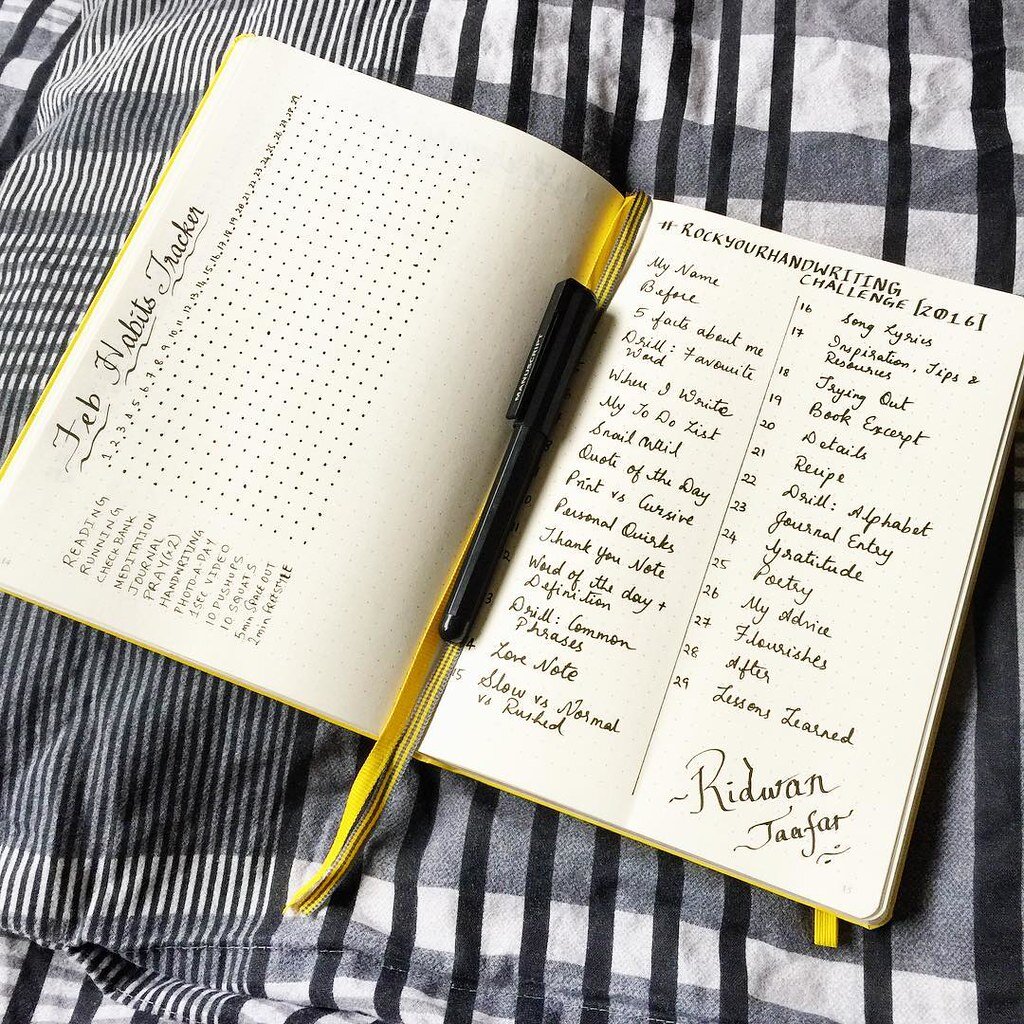 Feb Habits Tracker
1. 2. 3. 4. 5. 6. 7. 8. 9. 10. 11. 12. 13. 14. 15. 16. 17. 18. 19. 20. 21. 22. 23. 24. 25. 26. 27. 28. 29.
READING
RUNNING
CHECK BANK
MEDITATION
JOURNAL
PRAY (x2)
HANDWRITING
PHOTO-A-DAY
1 SEC VIDEO
10 PUSHUPS
10 SQUATS
5 min SPACE OUT
2 min FREESTYLE
MANUSCRIPT
#ROCKYOURHANDWRITING
CHALLENGE [2016]
My Name
Before
5 facts about me
Drill: Favourite
Word
Where I Write
My To Do List
Snail Mail
Quote of the Day
Print vs Cursive
Personal Quirks
Thank You Note
Word of the day +
Definition
Drill: Common
Phrases
Love Note
15 Slow vs Normal
vs Rushed
16 Song Lyrics
17 Inspiration, Tips &
Resources
18 Trying Out
19 Book Excerpt
20 Details
21 Recipe
22 Drill: Alphabet
23 Journal Entry
24 Gratitude
25 Poetry
26 My Advice
27 Flourishes
28 After
29 Lessons Learned
~Ridwan
Jaafar